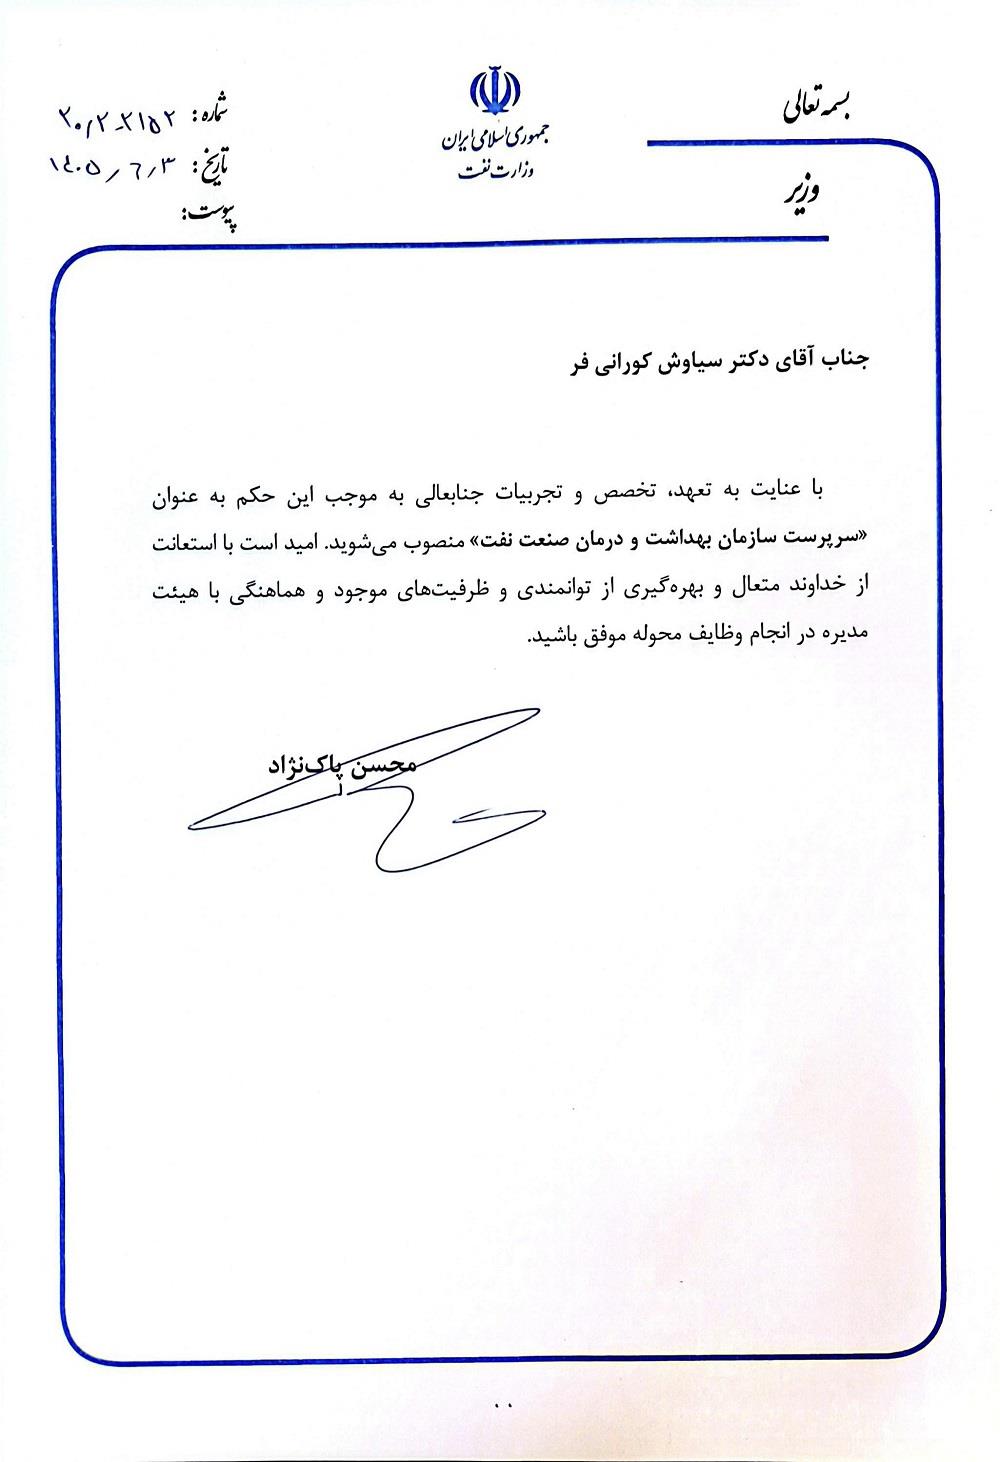 بسمه تعالی
وزیر
جمهوری اسلامی ایران
وزارت نفت
شماره: ۲۰/۲-۲۱۵۲
تاریخ: ۱۴۰۵/۶/۳
پیوست:
جناب آقای دکتر سیاوش کورانی فر
با عنایت به تعهد، تخصص و تجربیات جنابعالی به موجب این حکم به عنوان
«سرپرست سازمان بهداشت و درمان صنعت نفت» منصوب می‌شوید. امید است با استعانت
از خداوند متعال و بهره‌گیری از توانمندی و ظرفیت‌های موجود و هماهنگی با هیئت
مدیره در انجام وظایف محوله موفق باشید.
محسن پاک‌نژاد